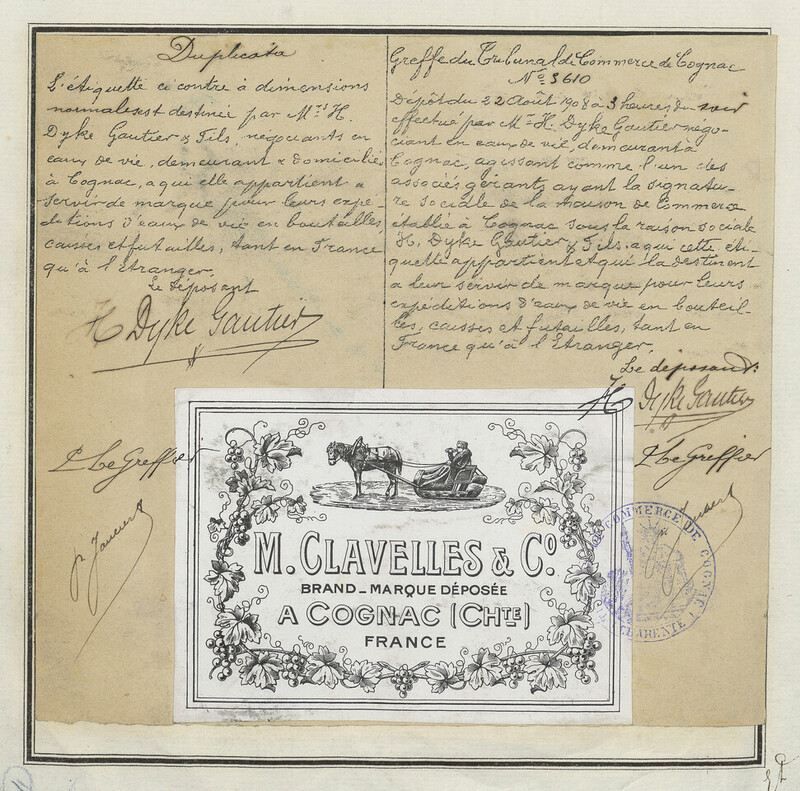 Duplicata
L'étiquette ci contre à dimensions
normales est destinée par Mrs H.
Dyke Gautier & Fils, négociants en
eaux de vie, demeurant & domiciliés
à Cognac, a qui elle appartient a
servir de marque pour leurs expé-
ditions d'eaux de vie en bouteilles
caisses et futailles, tant en France
qu'à l'Etranger.
Le Déposant
H Dyke Gautier
Le Greffier
Greffe du Tribunal de Commerce de Cognac
No 3610
Dépôt du 22 Août 1908 à 3 heures du soir
effectué par Mr H. Dyke Gautier négo-
ciant en eaux de vie, demeurant à
Cognac, agissant comme l'un des
associés gérants ayant la signatu-
re sociale de la maison de Commerce
établie à Cognac sous la raison sociale
H. Dyke Gautier & Fils. a qui cette éti-
quette appartient et qui la destinent
a leur servir de marque pour leurs
expéditions d'eaux de vie en bouteil-
les, caisses et futailles, tant en
France qu'à l'Etranger.
Le déposant:
H Dyke Gautier
Le Greffier
M. CLAVELLES & Co.
BRAND_MARQUE DÉPOSÉE
A COGNAC (CHTE)
FRANCE
COMMERCE DE COGNAC
CHARENTE